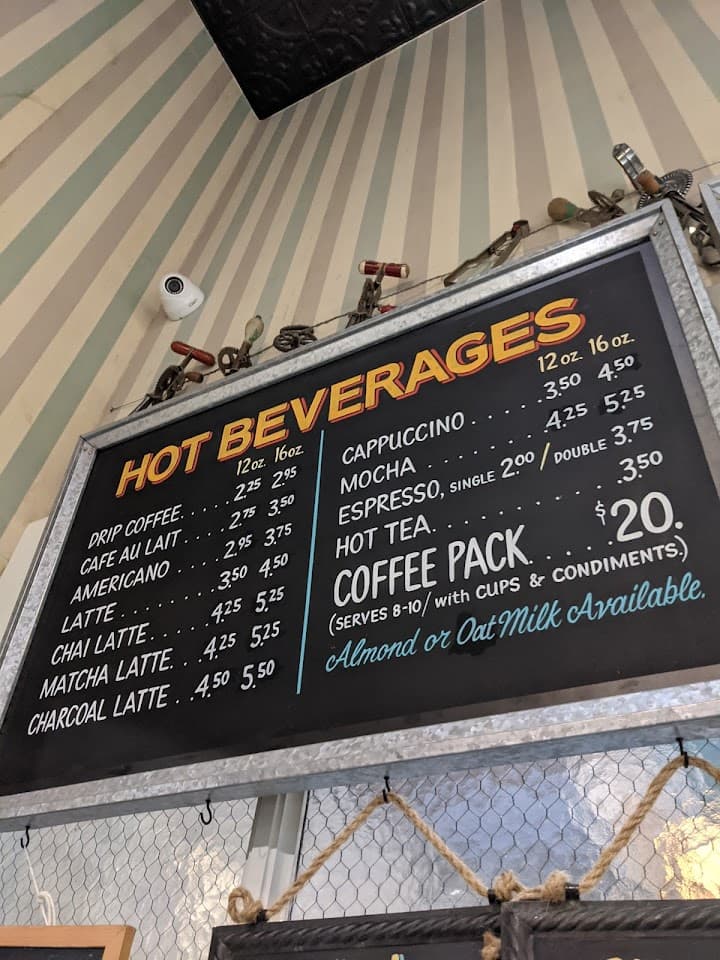 HOT BEVERAGES
12oz. 16oz.
DRIP COFFEE. . . . . 2.25 2.95
CAFE AU LAIT . . . . 2.75 3.50
AMERICANO . . . . 2.95 3.75
LATTE . . . . . . . . 3.50 4.50
CHAI LATTE . . . . . 4.25 5.25
MATCHA LATTE. . . 4.25 5.25
CHARCOAL LATTE . . 4.50 5.50
12 oz. 16 oz.
CAPPUCCINO . . . . . 3.50 4.50
MOCHA . . . . . . . . 4.25 5.25
ESPRESSO, SINGLE 2.00 / DOUBLE 3.75
HOT TEA. . . . . . . . . . . .3.50
COFFEE PACK. . . . . $20.
(SERVES 8-10/ with CUPS & CONDIMENTS.)
Almond or Oat Milk Available.